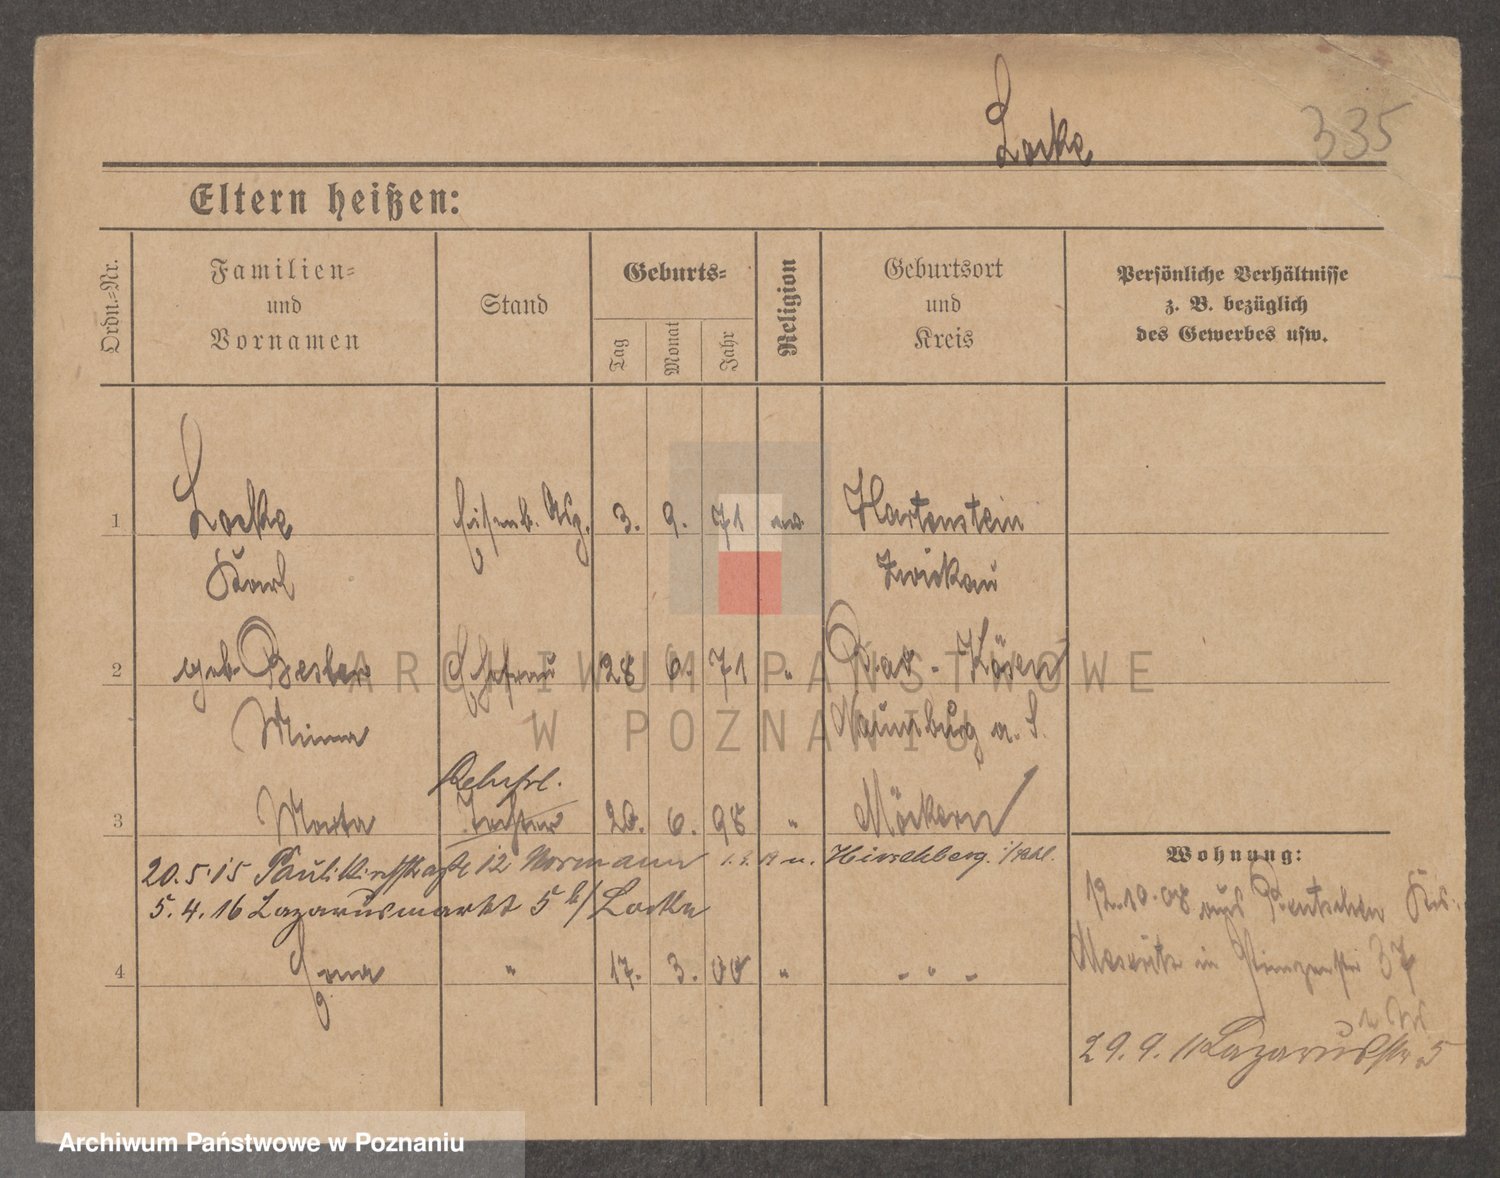 Locke
335
Eltern heißen:
Ordn.-Nr.
Familien- und Vornamen
Stand
Geburts-
Tag
Monat
Jahr
Religion
Geburtsort und Kreis
Persönliche Verhältnisse
z. B. bezüglich
des Gewerbes usw.
1 Locke Eisenb. 3. 9. 71 Hartenstein
Karl Zwickau
2 geb. Besler Ehefrau 28 6. 71 " Bad-Kösen
Minna Naumburg a. S.
3 Marta Tochter 20. 6. 98 " Möckern
20.5.15 Paulikirchstraße 12 Normann u. Hirschberg i/Schl.
5.4.16 Lazarusmarkt 5 b/ Locke
4 Erna " 17. 3. 00 " - " -
Wohnung:
12.10.08 aus Bentschen Krs.
Meseritz in 37
29.9.11 Lazarusstr 5
ARCHIWUM PAŃSTWOWE
W POZNANIU
Archiwum Państwowe w Poznaniu